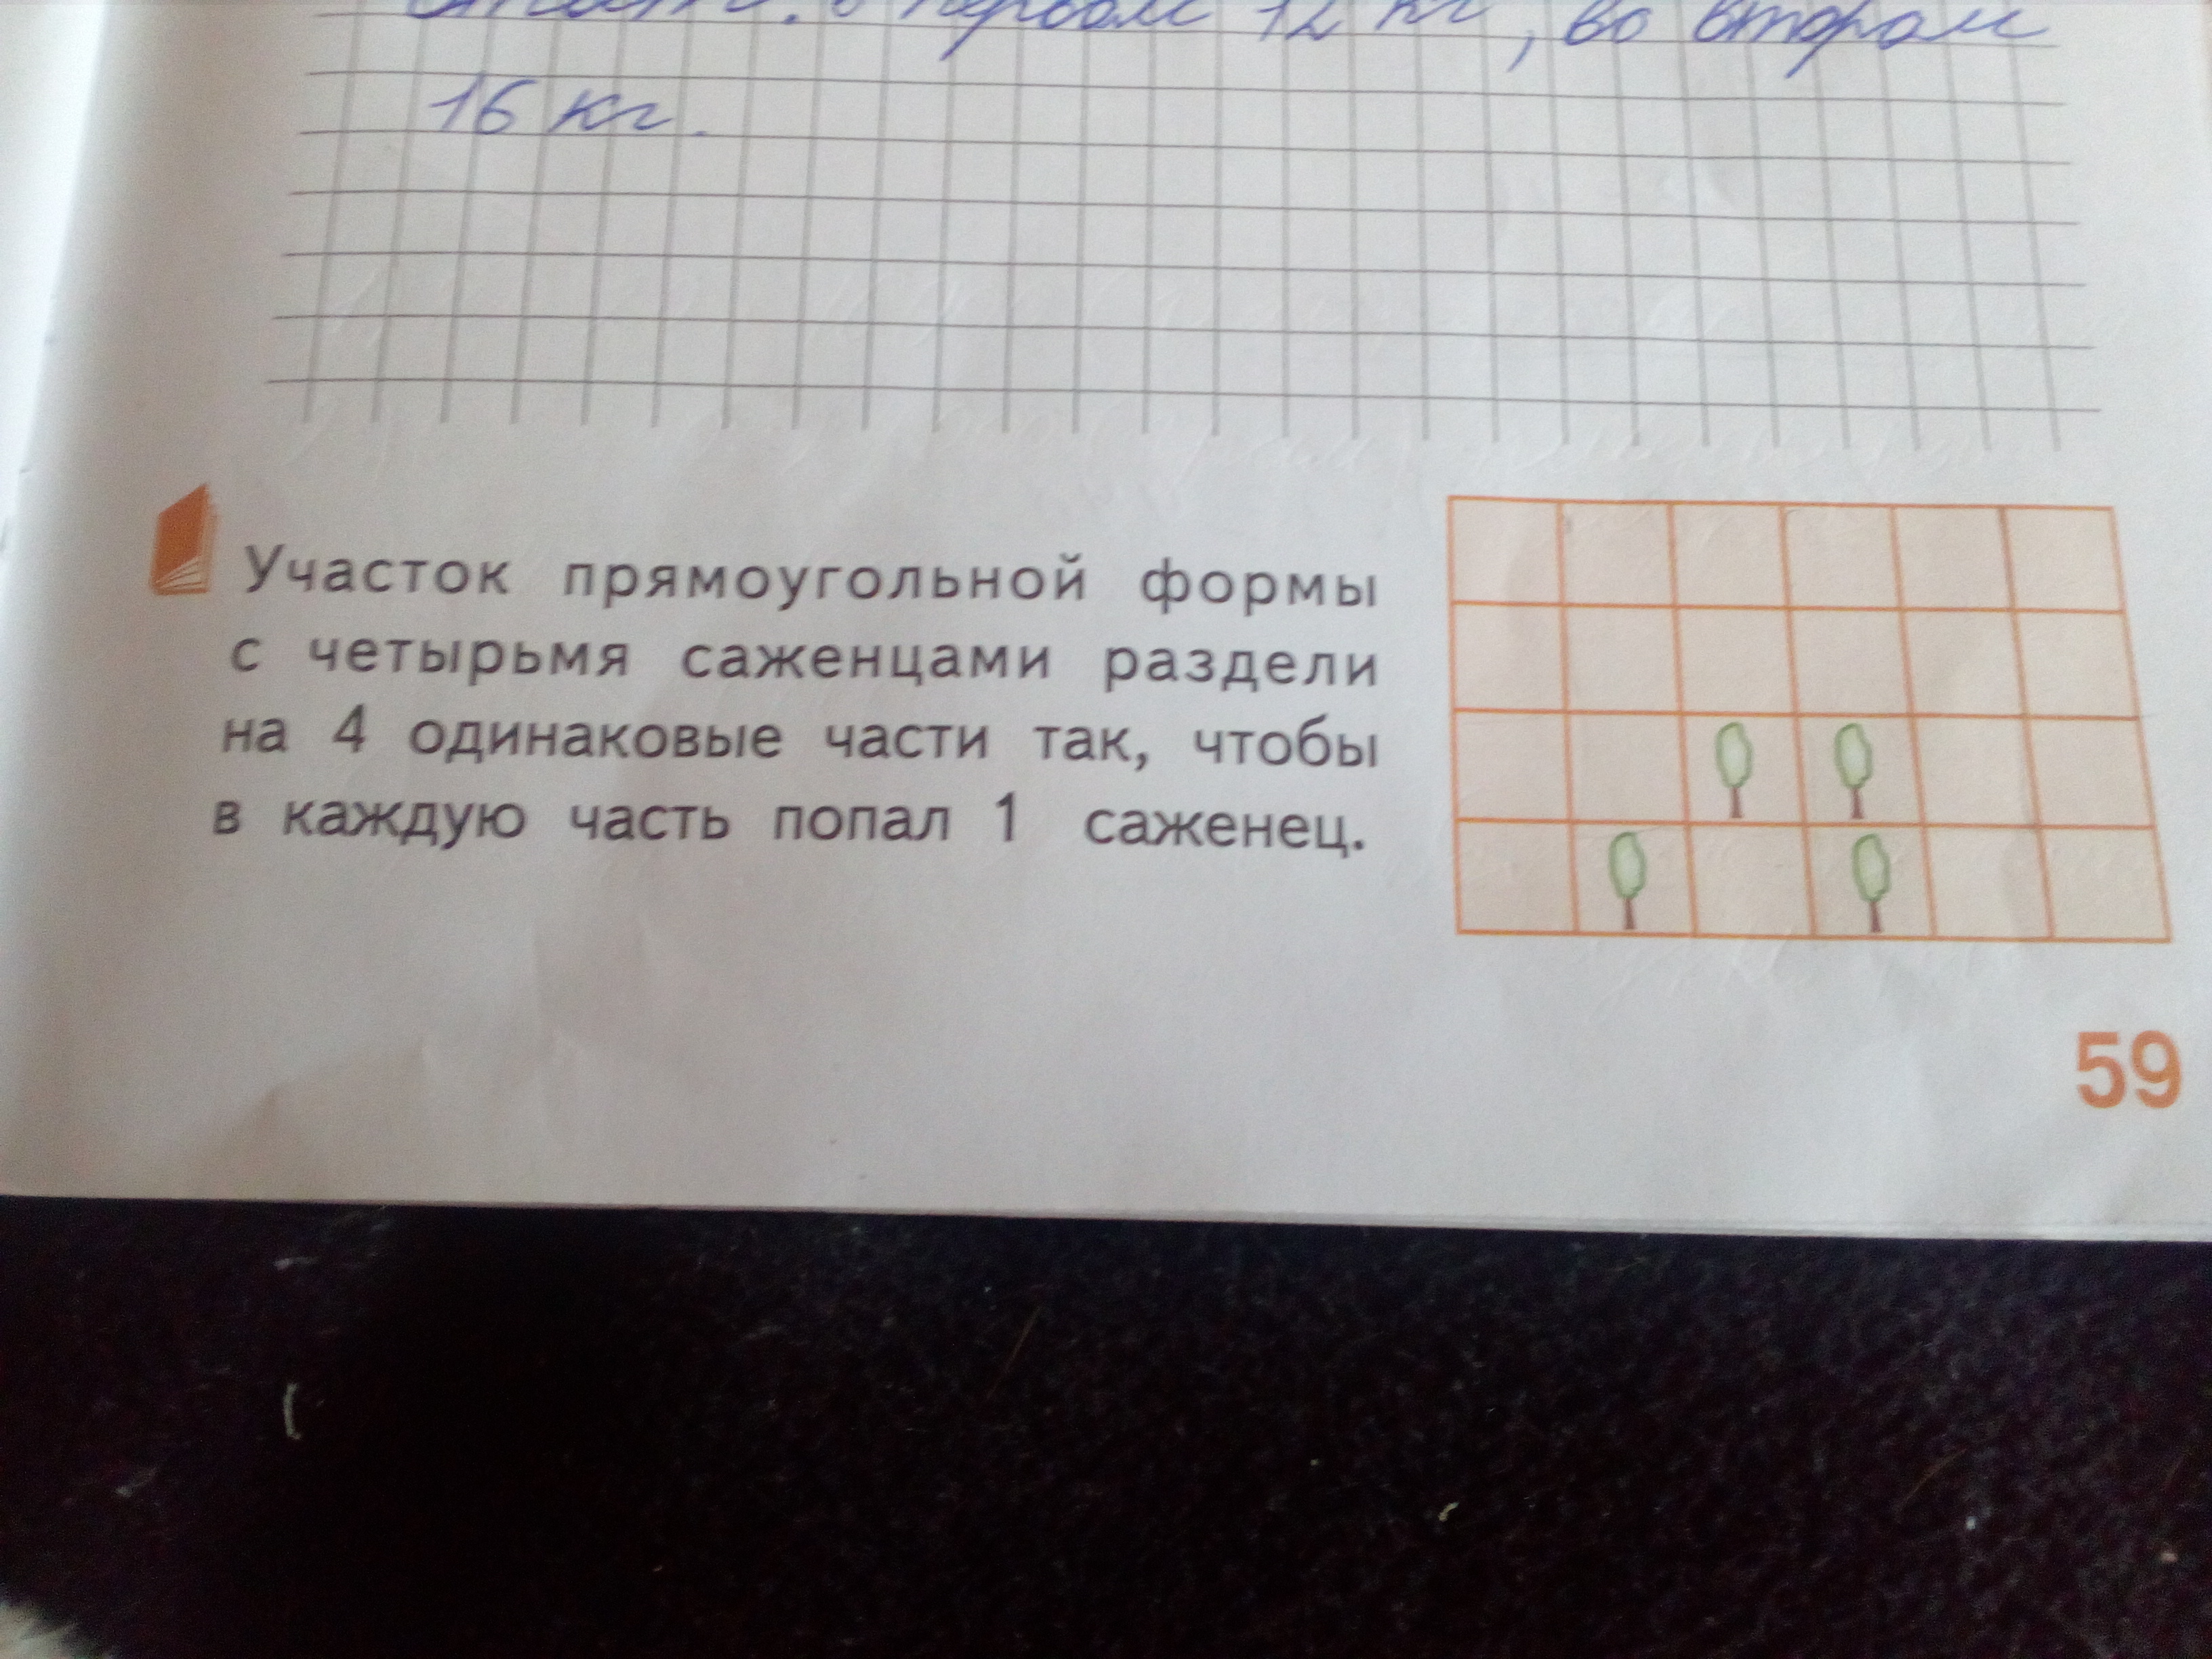 Ответ: в первом 12 кг, во втором
16 кг.
Участок прямоугольной формы
с четырьмя саженцами раздели
на 4 одинаковые части так, чтобы
в каждую часть попал 1 саженец.
59